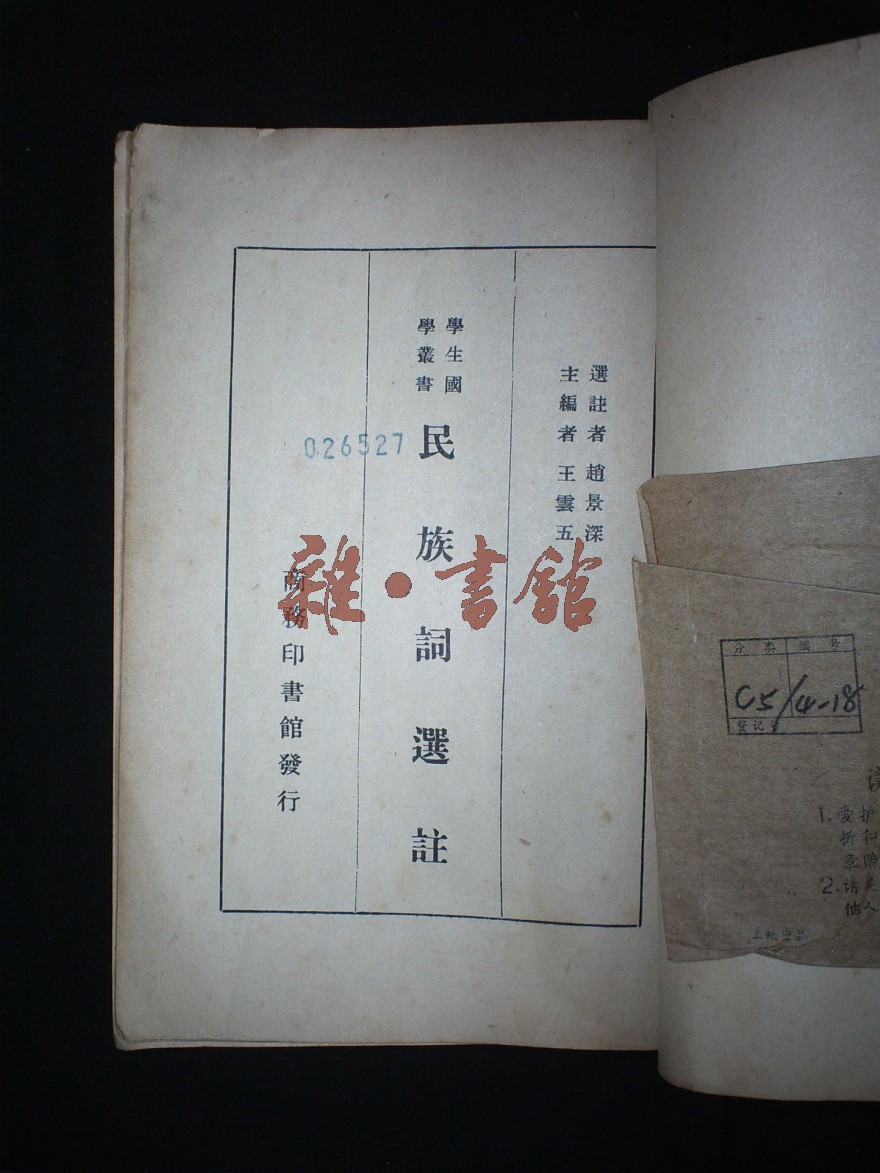 選註者 趙景深
主編者 王雲五
學生國
學叢書
民族詞選註
026527
商務印書館發行
雜·書館
分类 編号
C5/4-18
登记号
1.愛护
折和
章賠
2.请
他人